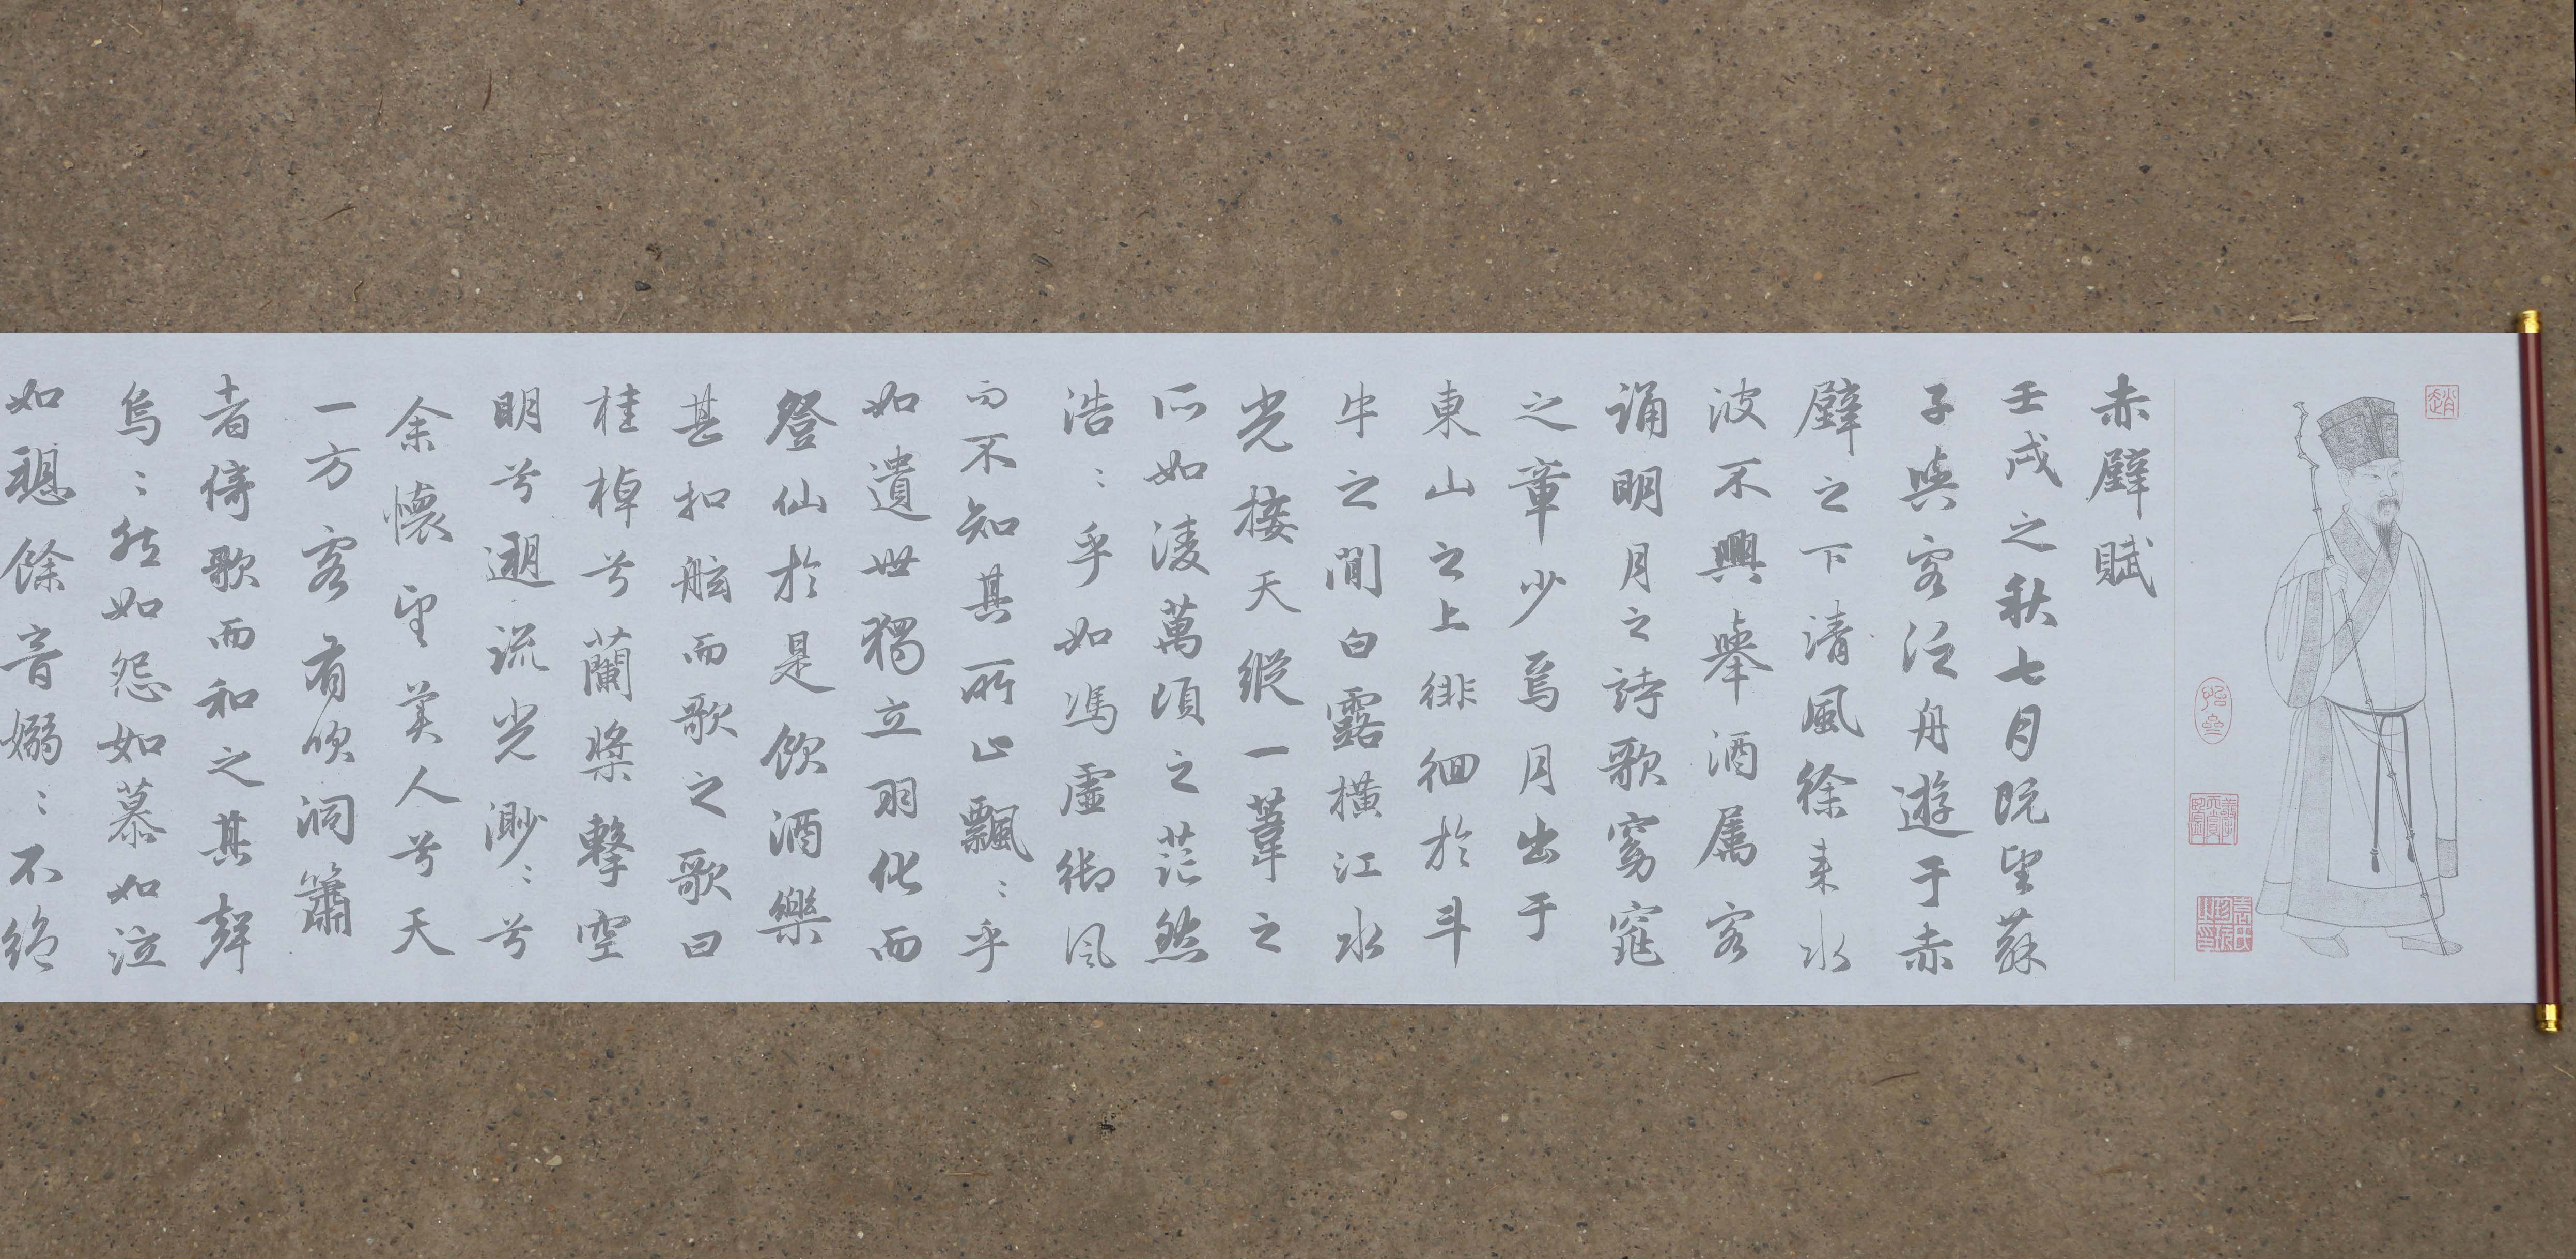 赤壁賦
壬戌之秋七月既望蘇
子與客泛舟遊于赤
壁之下清風徐來水
波不興舉酒属客
誦明月之詩歌窈窕
之章少焉月出于
東山之上徘徊於斗
牛之間白露橫江水
光接天縱一葦之
所如淩萬頃之茫然
浩〻乎如馮虛御風
而不知其所止飄〻乎
如遺世獨立羽化而
登仙於是飲酒樂
甚扣舷而歌之歌曰
桂棹兮蘭槳擊空
明兮遡流光渺〻兮
余懷望美人兮天
一方客有吹洞簫
者倚歌而和之其聲
烏〻然如怨如慕如泣
如聽餘音嫋〻不絕